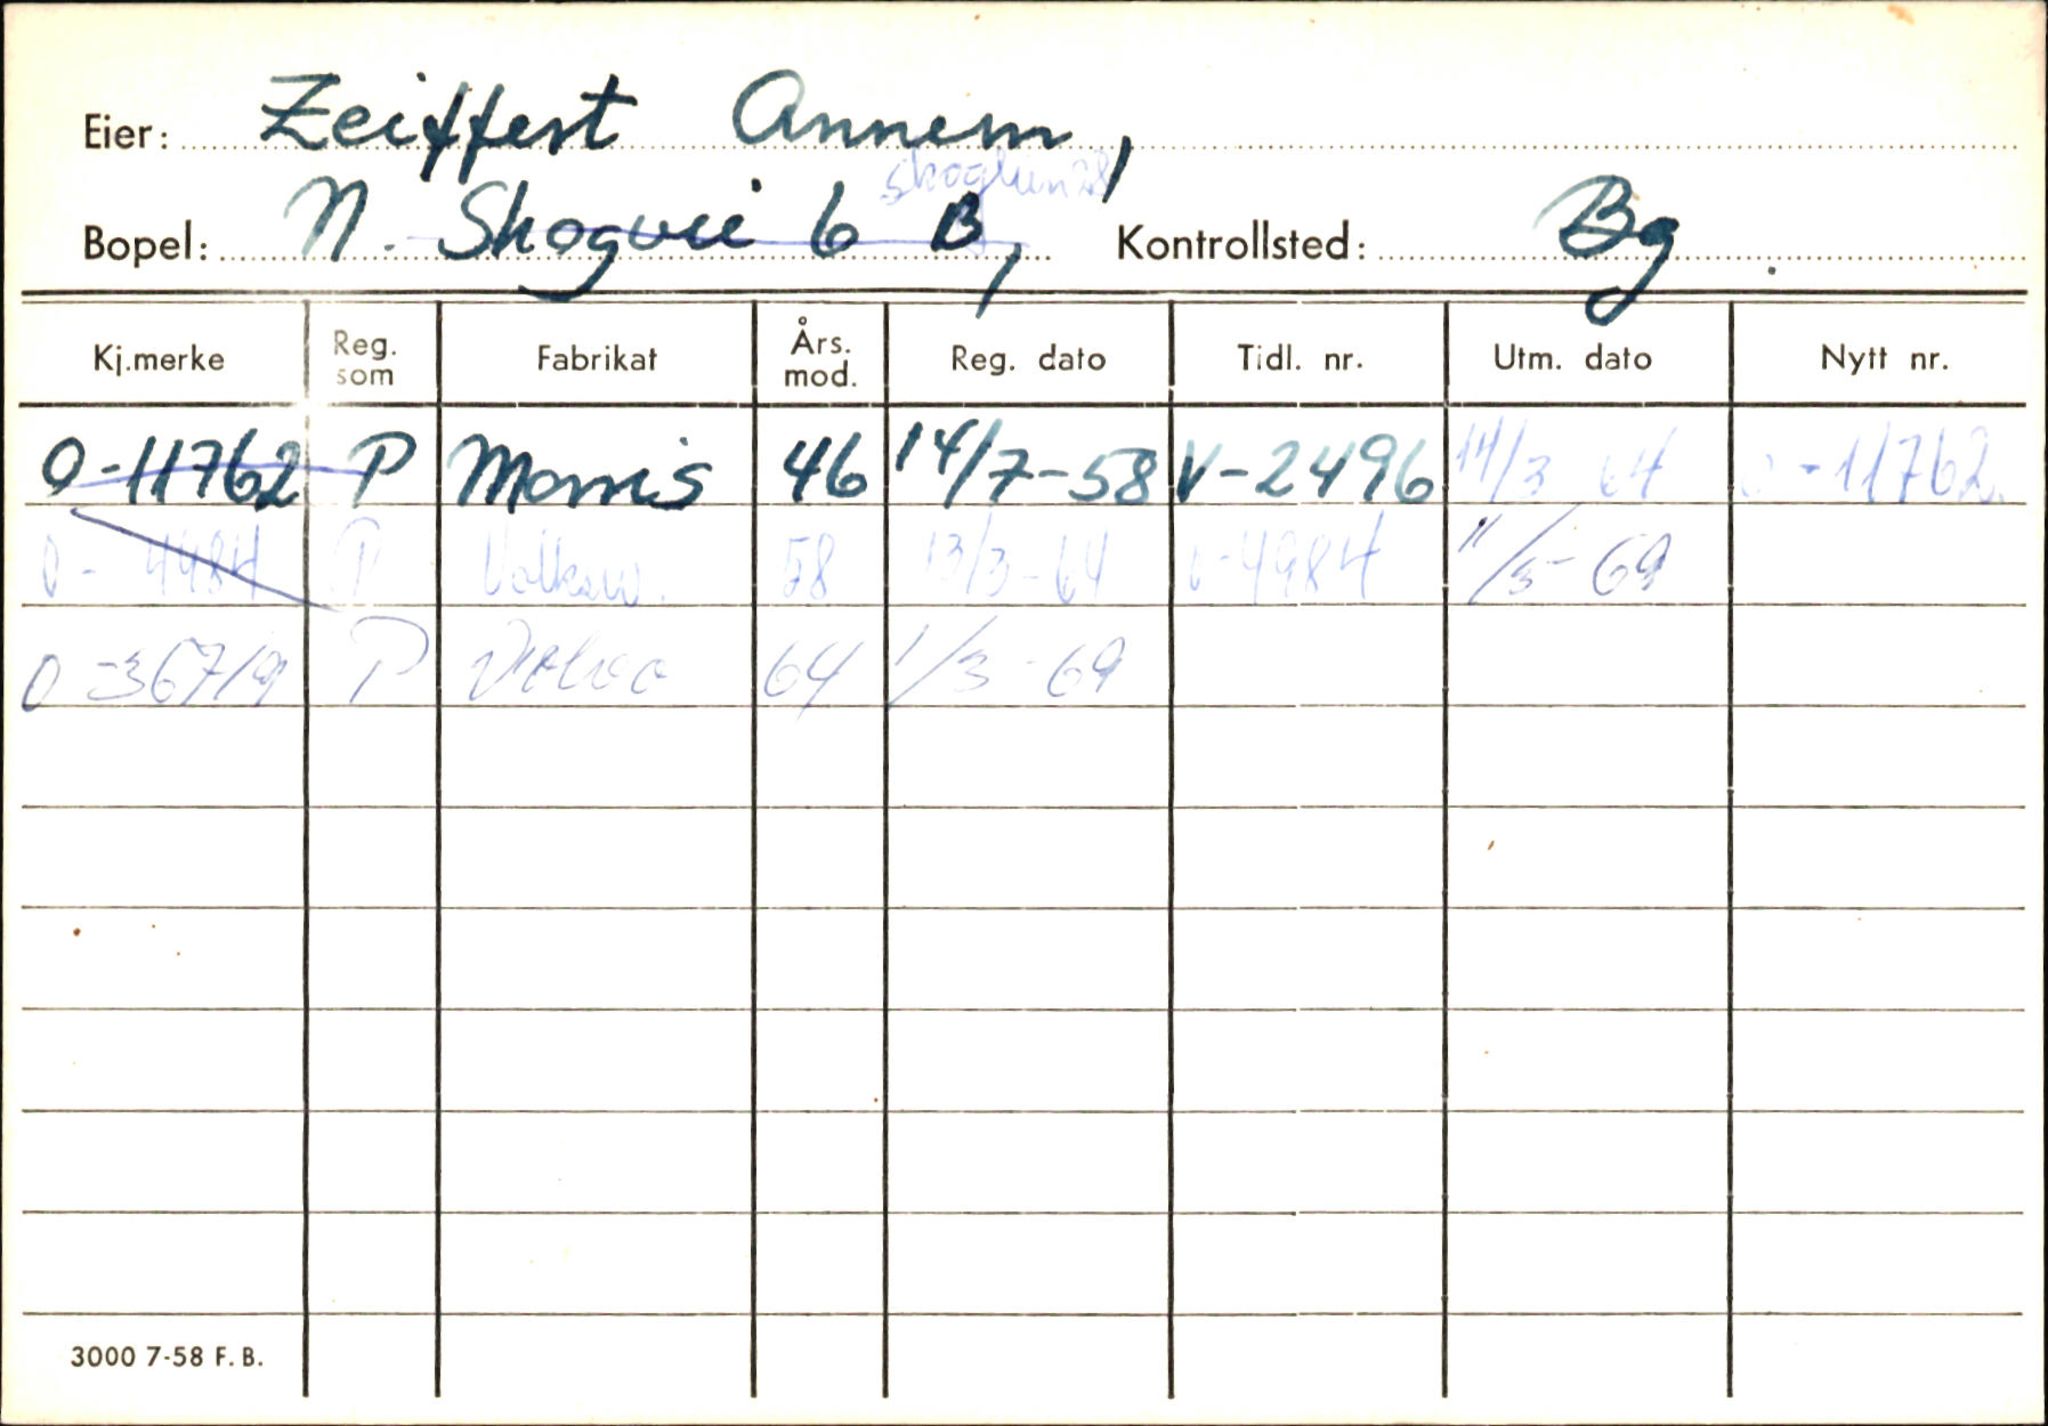 Eier: Zeiffert Annem,
Skoglien 28
Bopel: N. Skogvei 6 B, Kontrollsted: Bg
Kj.merke Reg. som Fabrikat Års. mod. Reg. dato Tidl. nr. Utm. dato Nytt nr.
O-11762 P Morris 46 14/7-58 V-2496 14/3 64 O-11762
O-4484 P Volksw. 58 13/3-64 11/3-69
O-36719 P Volvo 64 1/3-69
3000 7-58 F. B.